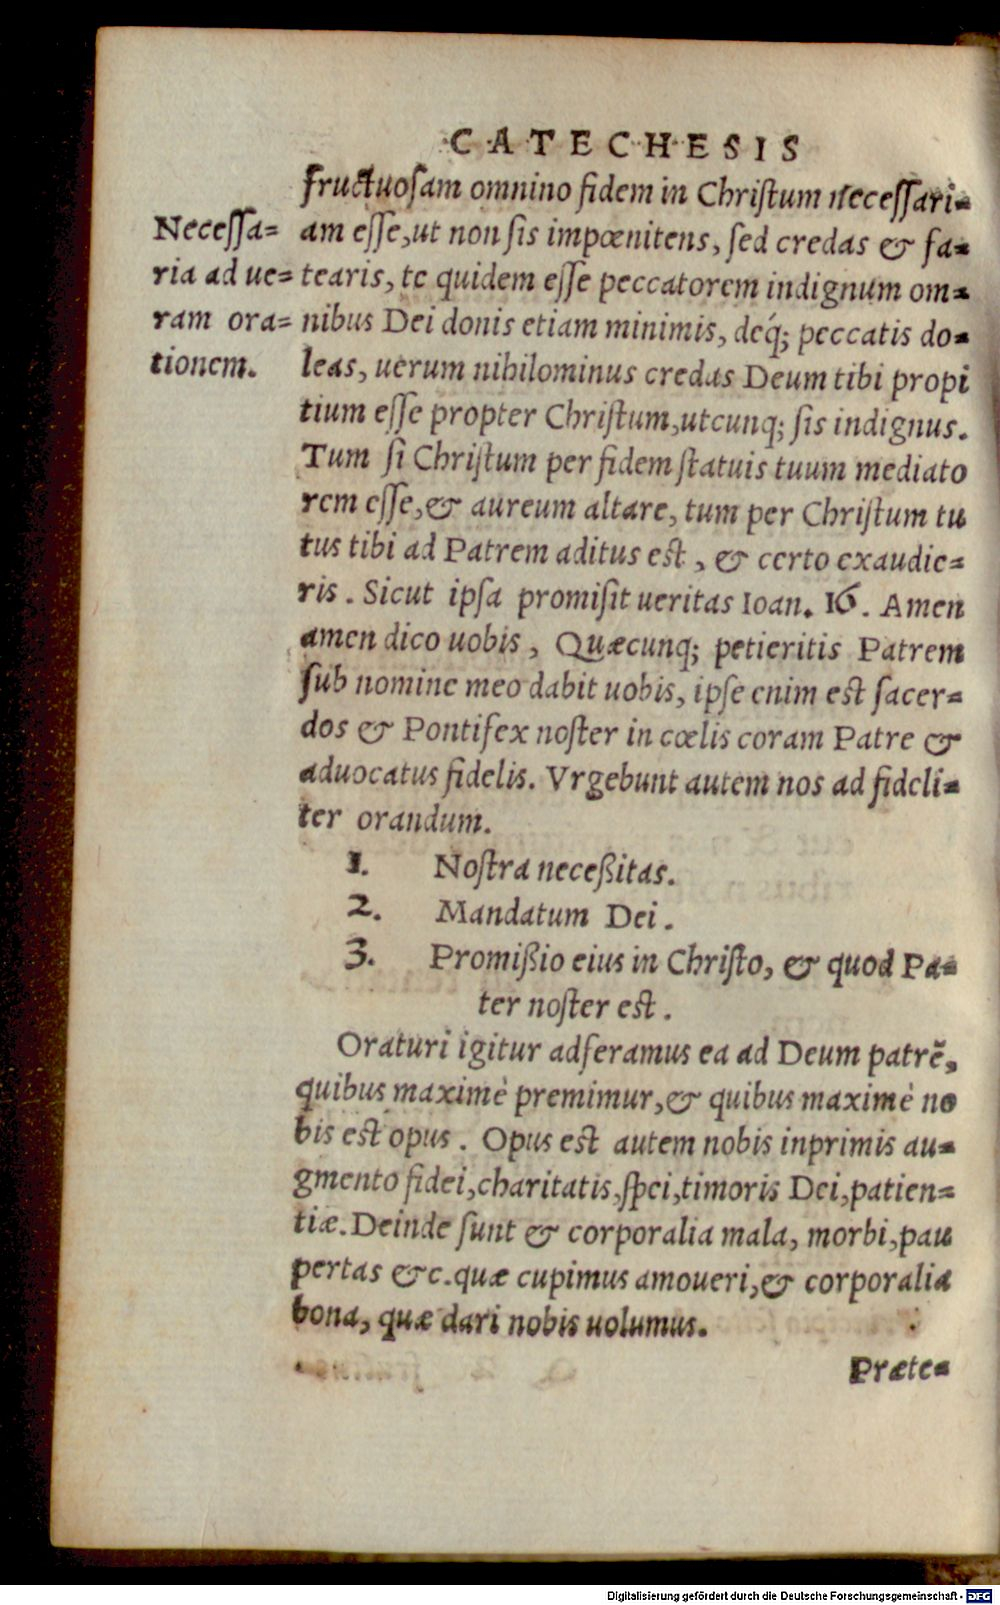 CATECHESIS
fructuosam omnino fidem in Christum necessari=
Necessa=
ria ad ue=
ram ora=
tionem.
am esse, ut non sis impœnitens, sed credas & fa=
tearis, te quidem esse peccatorem indignum om=
nibus Dei donis etiam minimis, deq́; peccatis do=
leas, uerum nihilominus credas Deum tibi propi
tium esse propter Christum, utcunq; sis indignus.
Tum si Christum per fidem statuis tuum mediato
rem esse, & aureum altare, tum per Christum tu
tus tibi ad Patrem aditus est, & certo exaudie=
ris. Sicut ipsa promisit ueritas Ioan. 16. Amen
amen dico uobis, Quæcunq; petieritis Patrem
sub nomine meo dabit uobis, ipse enim est sacer=
dos & Pontifex noster in cœlis coram Patre &
aduocatus fidelis. Vrgebunt autem nos ad fideli=
ter orandum.
1. Nostra neceßitas.
2. Mandatum Dei.
3. Promißio eius in Christo, & quod Pa=
ter noster est.
Oraturi igitur adferamus ea ad Deum patrẽ,
quibus maximè premimur, & quibus maximè no
bis est opus. Opus est autem nobis inprimis au=
gmento fidei, charitatis, spei, timoris Dei, patien=
tiæ. Deinde sunt & corporalia mala, morbi, pau
pertas &c. quæ cupimus amoueri, & corporalia
bona, quæ dari nobis uolumus.
Præte=
Digitalisierung gefördert durch die Deutsche Forschungsgemeinschaft - DFG